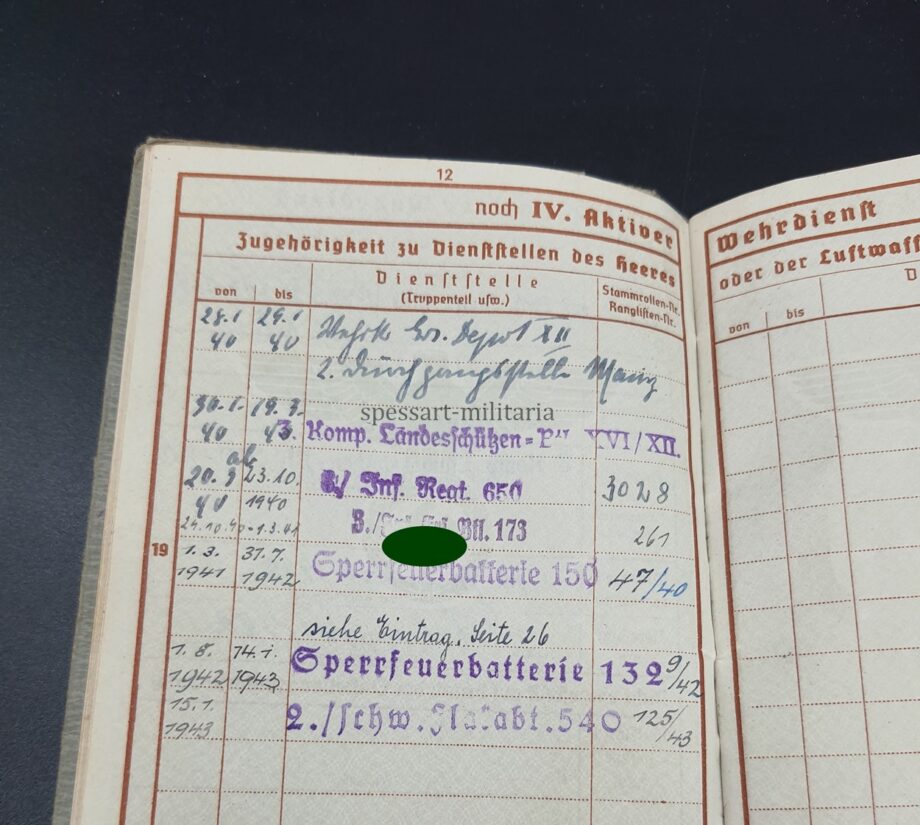 12
noch IV. Aktiver
Wehrdienst
Zugehörigkeit zu Dienststellen des Heeres
oder der Luftwaff
von
bis
Dienststelle
(Truppenteil usw.)
Stammrollen-Nr.
Ranglisten-Nr.
von
bis
D
28.1 29.1
40 40
Depot XII
2. Durchgangsstelle Mainz
spessart-militaria
30.1. 19.3.
40
Komp. Landesschützen=B XVI/XII.
ab
20. 3 23.10.
40 1940
Inf. Regt. 650
3028
24.10.40-1.3.41
3./ Btl. 173
261
19
1.3. 31.7.
1941 1942
Sperrfeuerbatterie 150
47/40
siehe Eintrag, Seite 26
1.8. 14.1.
1942 1943
Sperrfeuerbatterie 132
9/42
15.1.
1943
2./schw.Flakabt.540
125/43